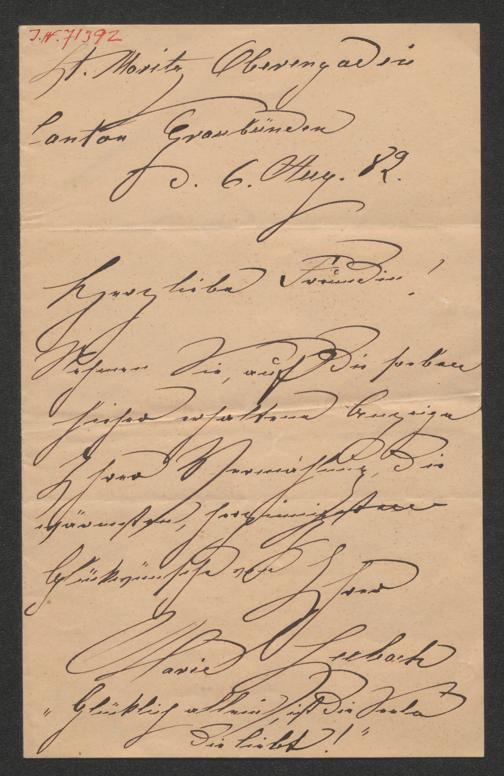 I.N. 71392
St. Moritz Oberengadin
Canton Graubünden
d. 6. Aug. 82.
Herzliebe Freundin!
Nehmen Sie, auf die soeben
hieher erhaltene Anzeige
Ihrer Vermählung, die
wärmsten, herzinnigsten
Glückwünsche von Ihrer
Marie Seebach
„Glücklich allein, ist die Seele
die liebt!"